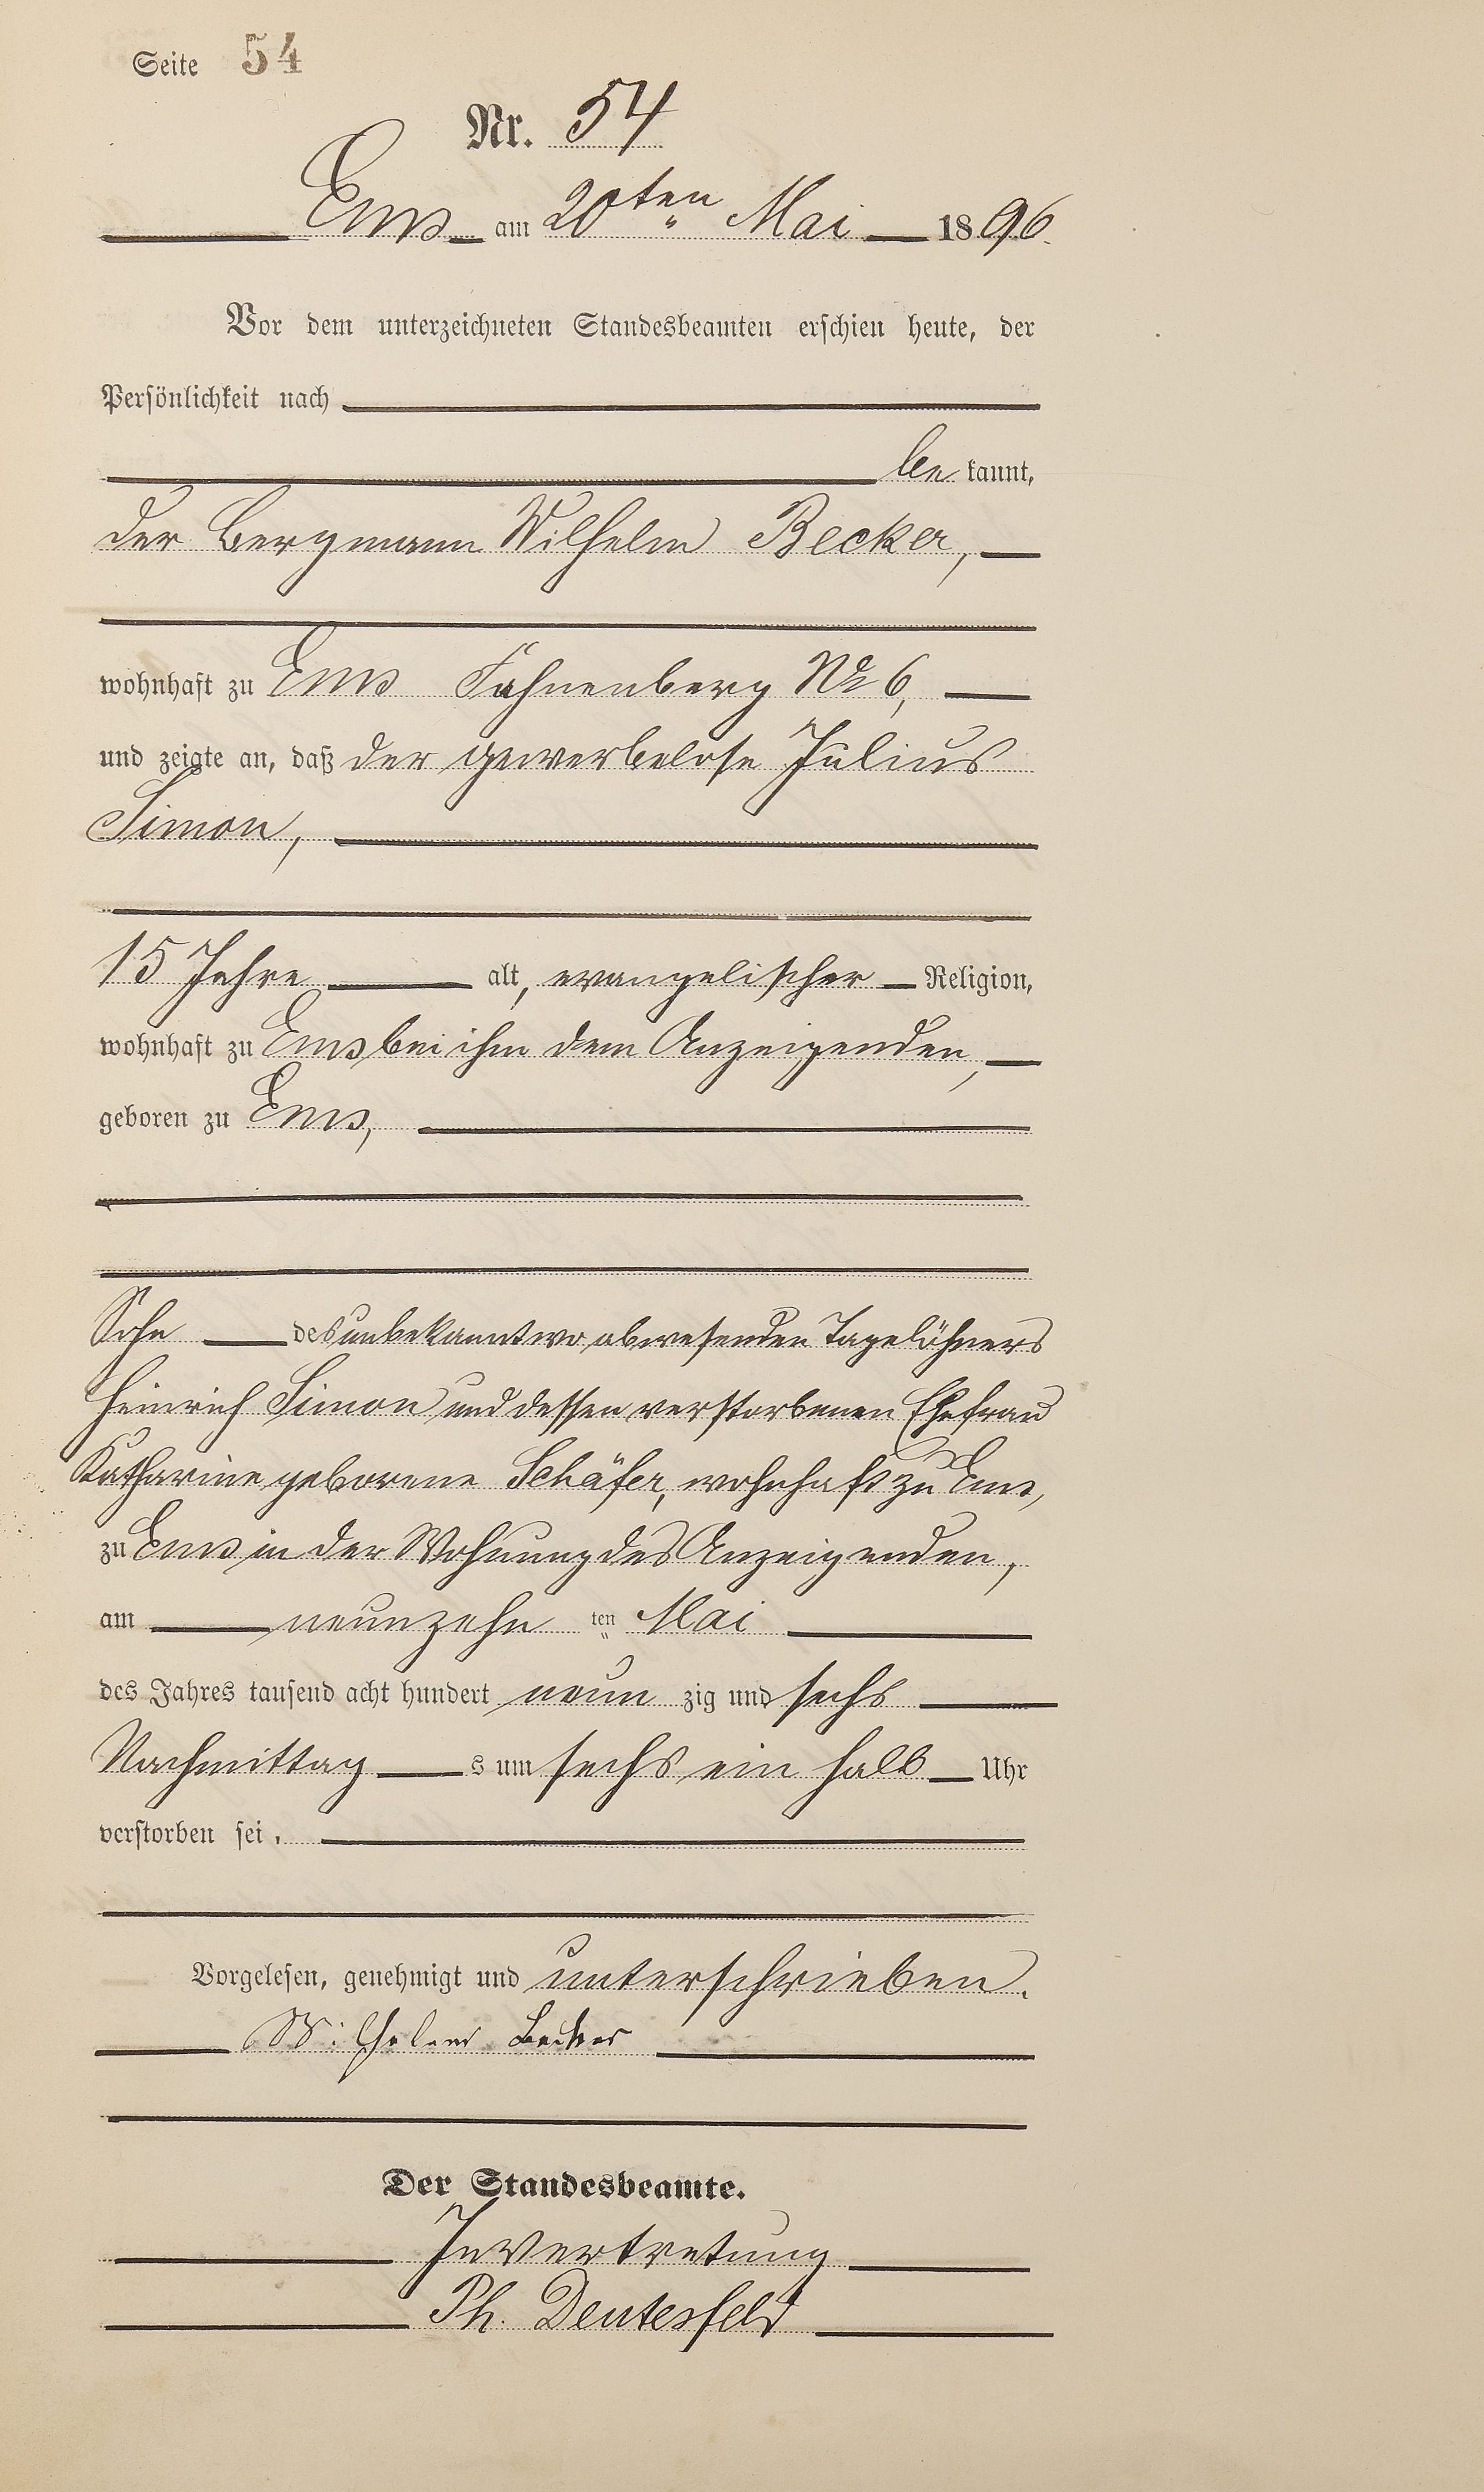 Seite 54
Nr. 54
Ems am 20ten Mai 1896.
Vor dem unterzeichneten Standesbeamten erschien heute, der
Persönlichkeit nach
be kannt,
der Bergmann Wilhelm Becker,
wohnhaft zu Ems Fahnenberg No 6,
und zeigte an, daß der gewerbelose Julius
Simon,
15 Jahre alt, evangelischer Religion,
wohnhaft zu Ems bei ihm dem Anzeigenden,
geboren zu Ems,
Sohn des unbekannt wo abwesenden Tagelöhners
Heinrich Simon und dessen verstorbenen Ehefrau
Katharine geborene Schäfer, wohnhaft zu Ems,
zu Ems in der Wohnung des Anzeigenden,
am neunzehn ten Mai
des Jahres tausend acht hundert neun zig und sechs
Nachmittag s um sechs ein halb Uhr
verstorben sei.
Vorgelesen, genehmigt und unterschrieben.
Wilhelm Becker
Der Standesbeamte.
In Vertretung
Ph. Deutesfeld